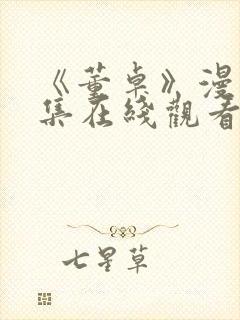 《董卓》漫
集在线觀看
七星草